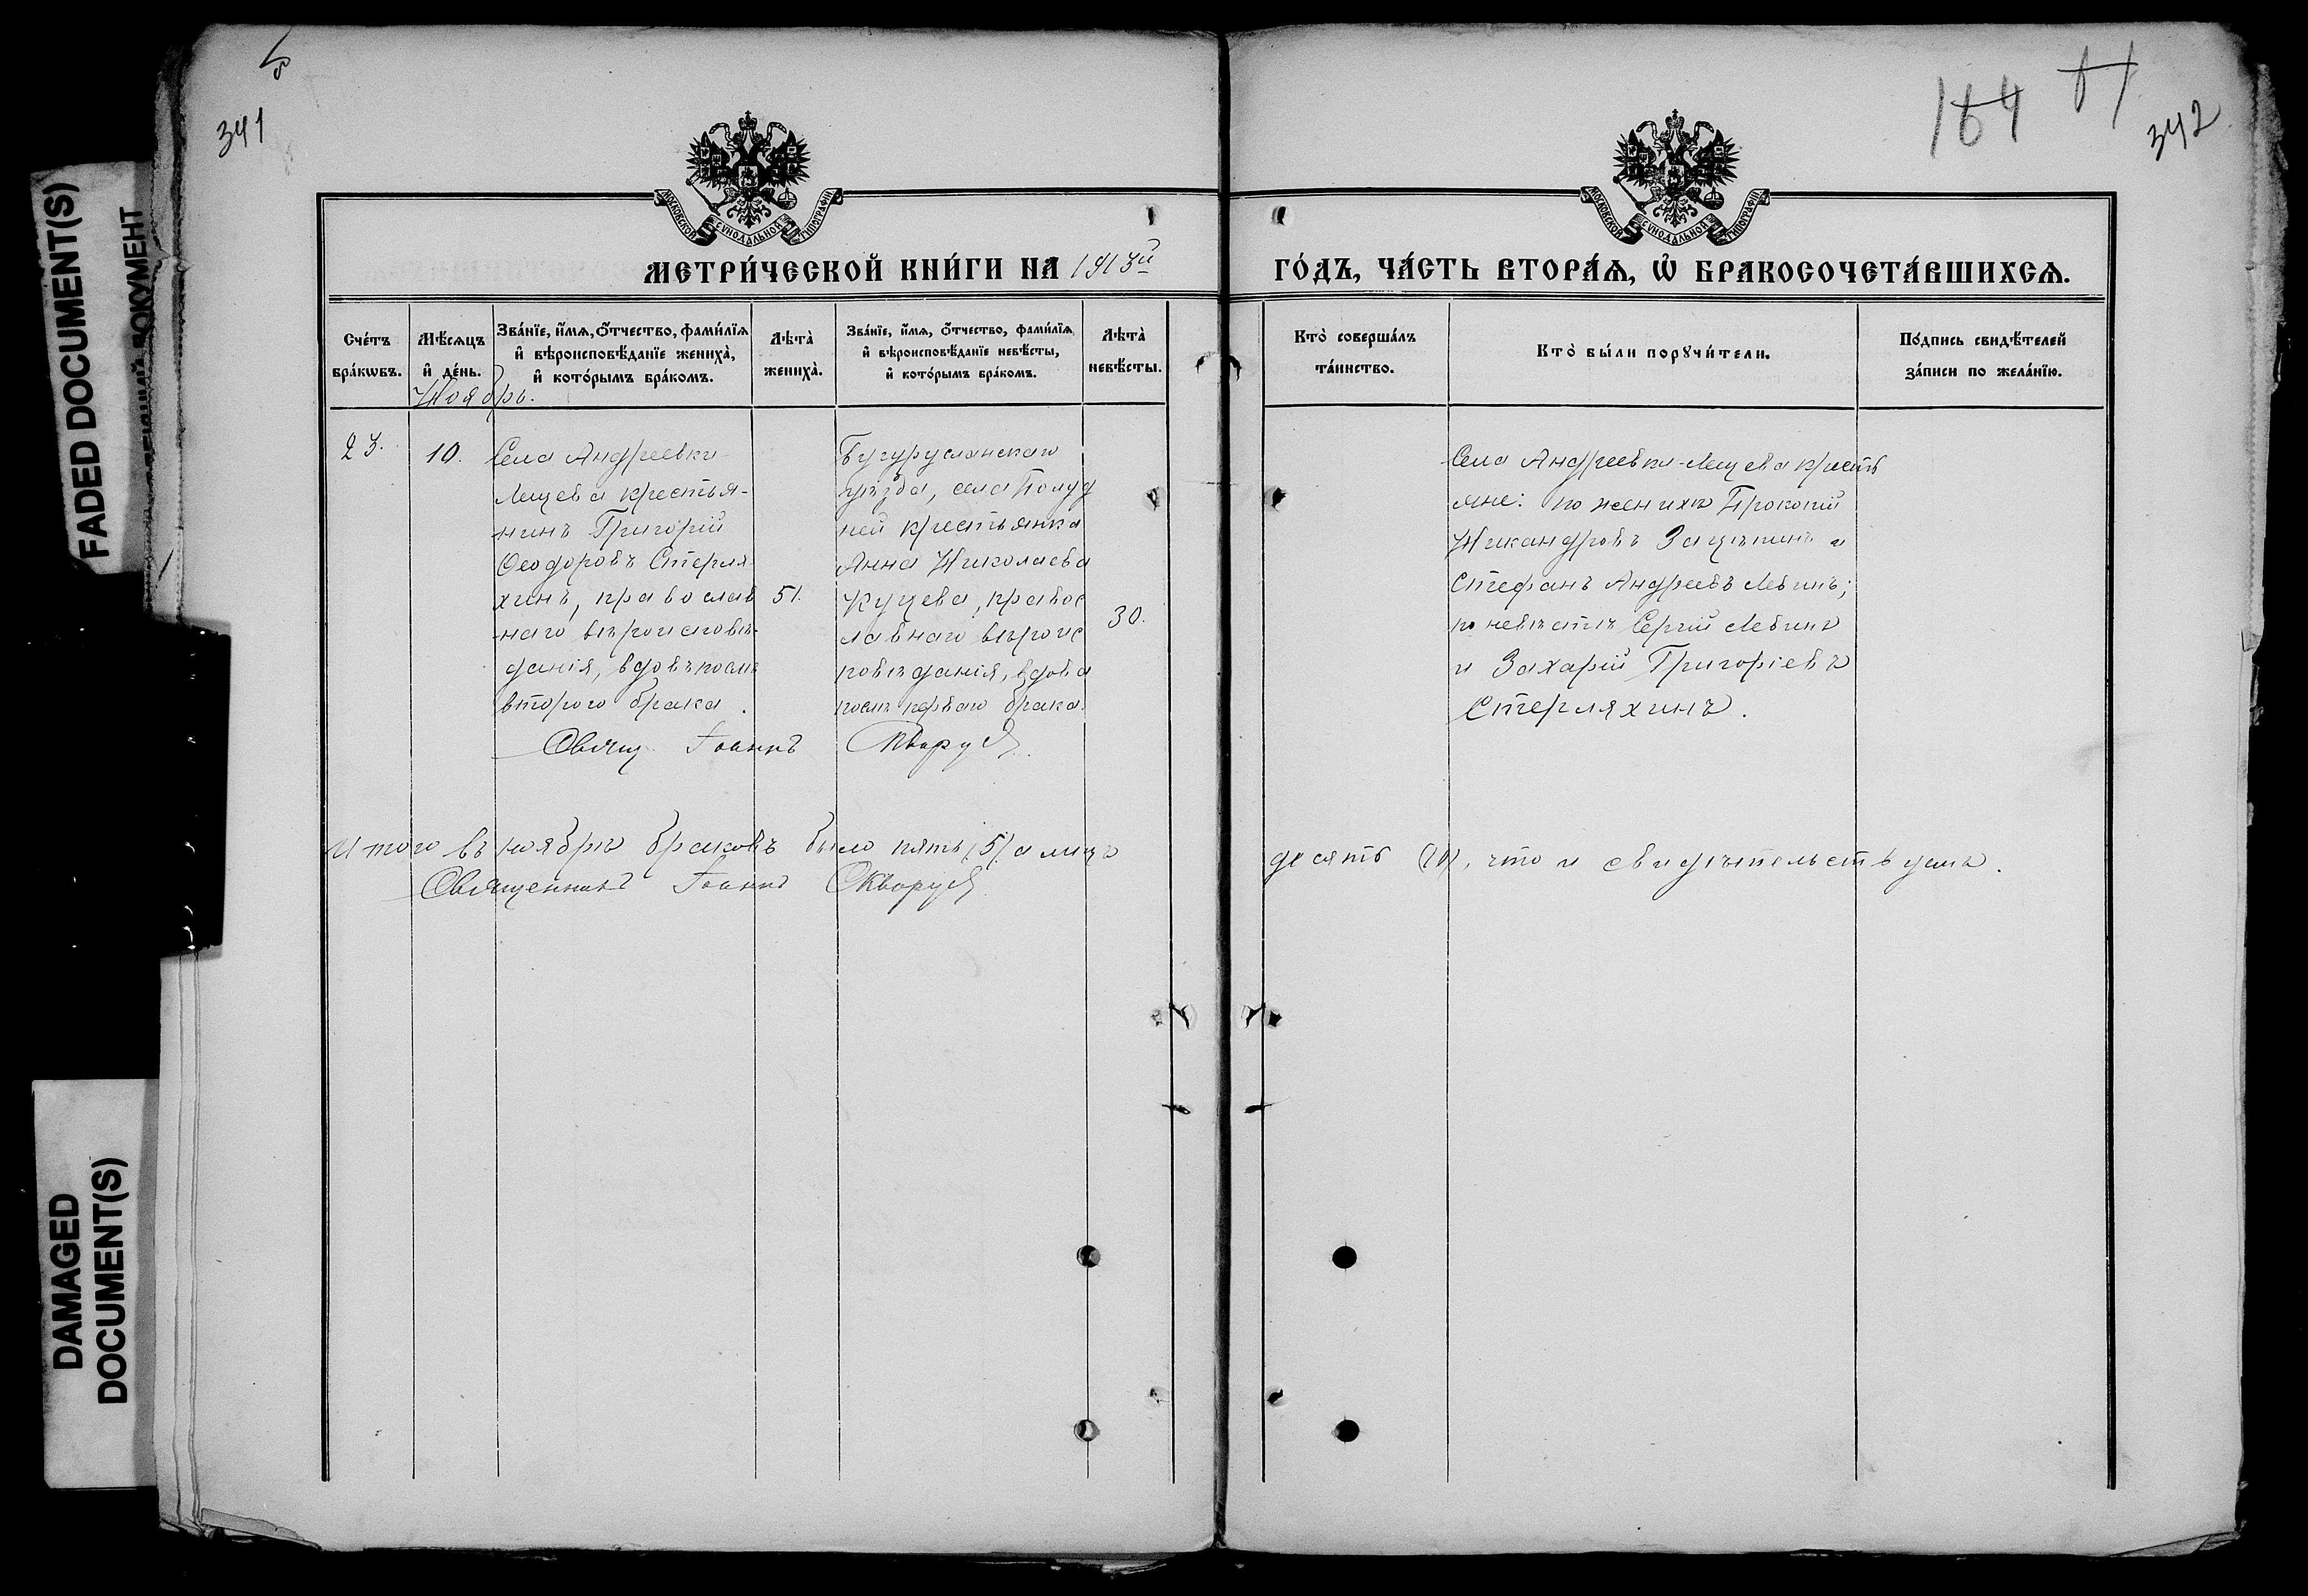 341
164
342
FADED DOCUMENT(S)
ДОКУМЕНТ
DAMAGED
DOCUMENT(S)
МОСКОВСКОЙ СѴНОДАЛЬНОЙ ТИПОГРАФІИ
МОСКОВСКОЙ СѴНОДАЛЬНОЙ ТИПОГРАФІИ
МЕТРИ́ЧЕСКОЙ КНИ́ГИ НА 1913й
ГО́ДЪ, ЧА́СТЬ ВТОРА́Ѧ, Ѡ҆ БРАКОСОЧЕТА́ВШИХСѦ.
Сче́тъ
бра́кѡвъ.
Мѣ́сѧцъ
и҆ де́нь.
Ноябрь.
Зва́нїе, и҆́мѧ, ѻ҆́тчество, фами́лїѧ
и҆ вѣроисповѣ́данїе жениха̀,
и҆ кото́рымъ бра́комъ.
Лѣта̀
жениха̀.
Зва́нїе, и҆́мѧ, ѻ҆́тчество, фами́лїѧ
и҆ вѣроисповѣ́данїе невѣ́сты,
и҆ кото́рымъ бра́комъ.
Лѣта̀
невѣ́сты.
Кто̀ соверша́лъ
та́инство.
Кто̀ бы́ли порꙋчи́тели.
По́дпись свидѣ́телей
за́писи по жела́нїю.
23.
10.
Села Андреевки
Лещева крестья-
нинъ Григорій
Ѳеодоровъ Стерля
хинъ, православ
наго вѣроисповѣ-
данія, вдовъ послѣ
второго брака.
51.
Бугурусланскаго
уѣзда, села Полуд
ней крестьянка
Анна Николаева
Куцева, правос
лавнаго вѣроис
повѣданія, вдова
послѣ перваго брака.
30.
Села Андреевки-Лещева кресть
яне: по женихѣ Прокопій
Никандровъ Зацѣпинъ и
Стефанъ Андреевъ Левинъ;
по невѣстѣ Сергій Левинъ
и Захарій Григоріевъ
Стерляхинъ.
Свящ. Іоаннъ
Итого въ ноябрѣ браковъ было пять (5), а лицъ
десять (10), что и свидѣтельствуемъ.
Священникъ Іоаннъ